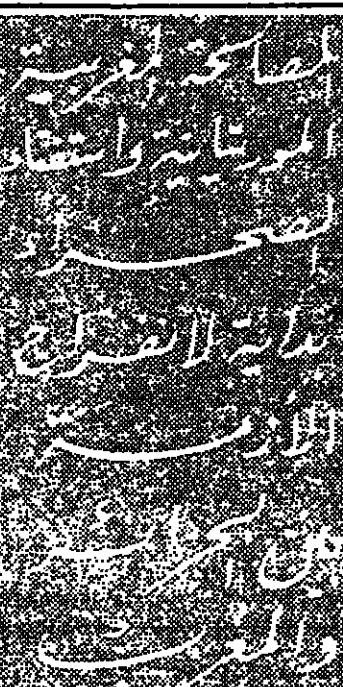 المصالحة المغربية
الموريتانية واستفتاء
الصحراء
بداية لانفراج
الأزمة
بين الجزائر
والمغرب